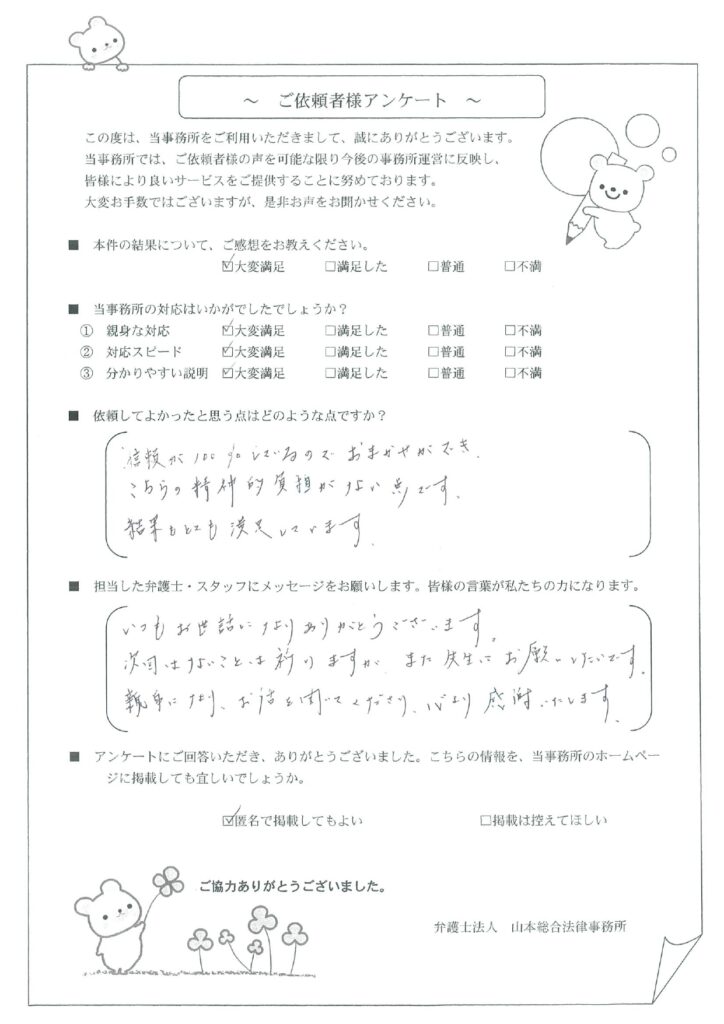 ～ ご依頼者様アンケート ～
この度は、当事務所をご利用いただきまして、誠にありがとうございます。
当事務所では、ご依頼者様の声を可能な限り今後の事務所運営に反映し、
皆様により良いサービスをご提供することに努めております。
大変お手数ではございますが、是非お声をお聞かせください。
■ 本件の結果について、ご感想をお教えください。
☑大変満足 □満足した □普通 □不満
■ 当事務所の対応はいかがでしたでしょうか？
① 親身な対応 ☑大変満足 □満足した □普通 □不満
② 対応スピード ☑大変満足 □満足した □普通 □不満
③ 分かりやすい説明 ☑大変満足 □満足した □普通 □不満
■ 依頼してよかったと思う点はどのような点ですか？
信頼が100％しているので おまかせができ、
こちらの精神的負担がない点です。
結果もとても満足しています。
■ 担当した弁護士・スタッフにメッセージをお願いします。皆様の言葉が私たちの力になります。
いつもお世話になりありがとうございます。
次回はないことは祈りますが、また先生にお願いしたいです。
親身になり、お話を聞いてくださり、心より感謝いたします。
■ アンケートにご回答いただき、ありがとうございました。こちらの情報を、当事務所のホームペー
ジに掲載しても宜しいでしょうか。
☑匿名で掲載してもよい □掲載は控えてほしい
ご協力ありがとうございました。
弁護士法人 山本総合法律事務所